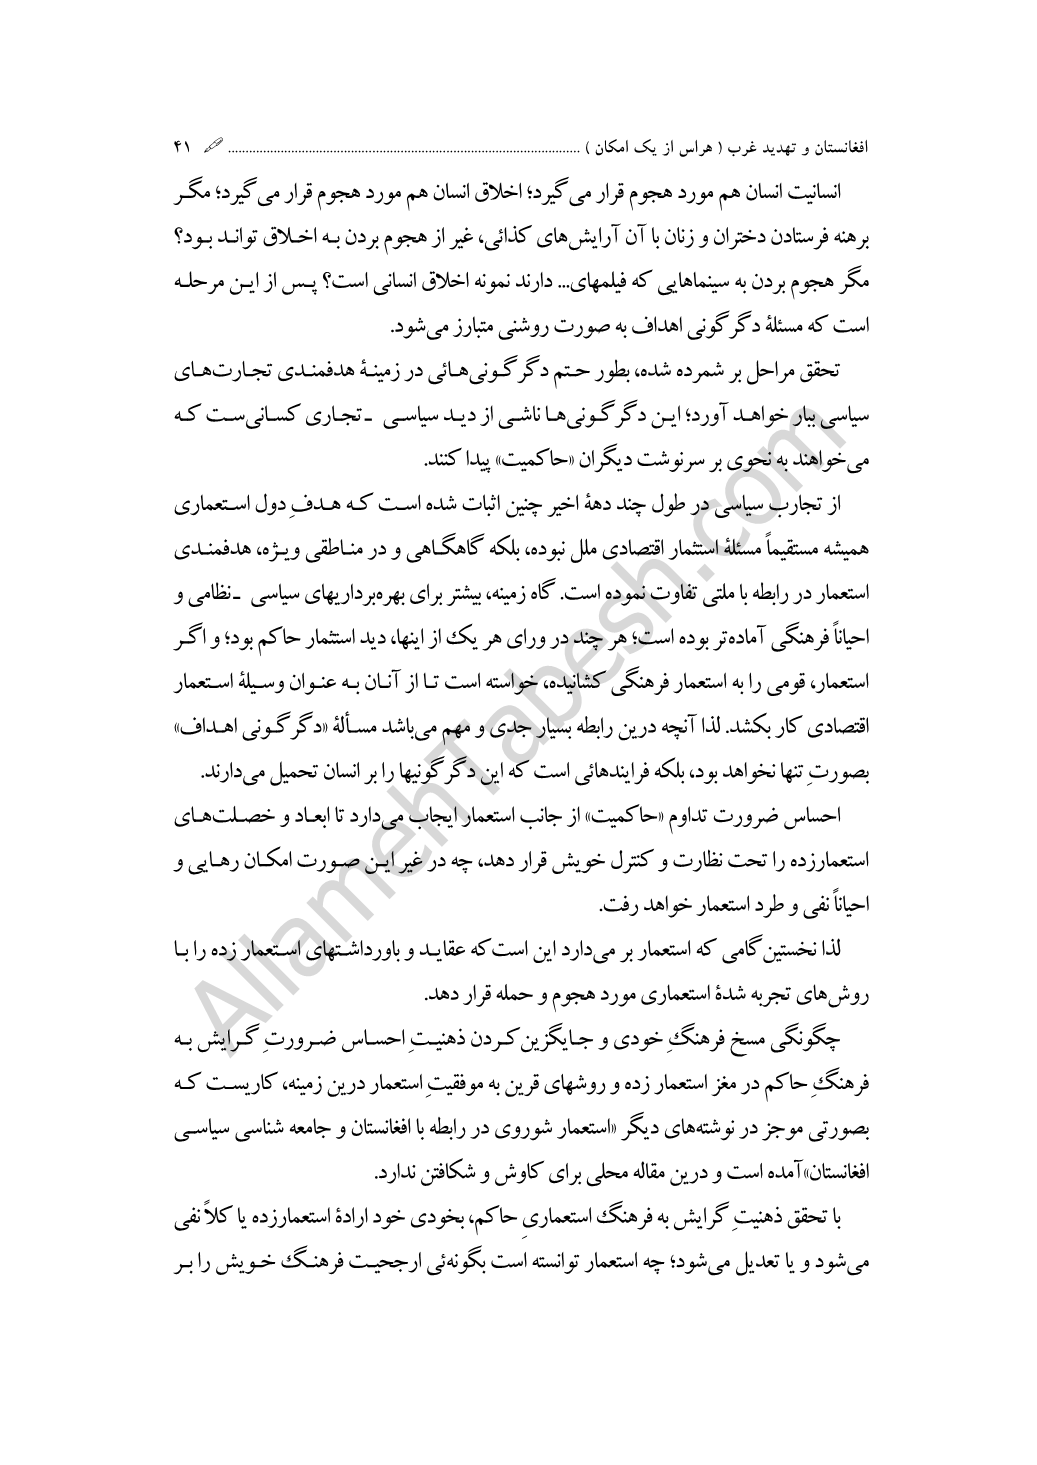 افغانستان و تهدید غرب ( هراس از یک امکان ) .................................................................................................... ۴۱
انسانیت انسان هم مورد هجوم قرار می‌گیرد؛ اخلاق انسان هم مورد هجوم قرار می‌گیرد؛ مگر
برهنه فرستادن دختران و زنان با آن آرایش‌های کذائی، غیر از هجوم بردن به اخلاق تواند بود؟
مگر هجوم بردن به سینماهایی که فیلمهای... دارند نمونه اخلاق انسانی است؟ پس از این مرحله
است که مسئلهٔ دگرگونی اهداف به صورت روشنی متبارز می‌شود.
تحقق مراحل بر شمرده شده، بطور حتم دگرگونی‌هائی در زمینهٔ هدفمندی تجارت‌های
سیاسی ببار خواهد آورد؛ این دگرگونی‌ها ناشی از دید سیاسی ـ تجاری کسانی‌ست که
می‌خواهند به نحوی بر سرنوشت دیگران «حاکمیت» پیدا کنند.
از تجارب سیاسی در طول چند دههٔ اخیر چنین اثبات شده است که هدفِ دول استعماری
همیشه مستقیماً مسئلهٔ استثمار اقتصادی ملل نبوده، بلکه گاهگاهی و در مناطقی ویژه، هدفمندی
استعمار در رابطه با ملتی تفاوت نموده است. گاه زمینه، بیشتر برای بهره‌برداریهای سیاسی ـ نظامی و
احیاناً فرهنگی آماده‌تر بوده است؛ هر چند در ورای هر یک از اینها، دید استثمار حاکم بود؛ و اگر
استعمار، قومی را به استعمار فرهنگی کشانیده، خواسته است تا از آنان به عنوان وسیلهٔ استعمار
اقتصادی کار بکشد. لذا آنچه درین رابطه بسیار جدی و مهم می‌باشد مسألهٔ «دگرگونی اهداف»
بصورتِ تنها نخواهد بود، بلکه فرایندهائی است که این دگرگونیها را بر انسان تحمیل می‌دارند.
احساس ضرورت تداوم «حاکمیت» از جانب استعمار ایجاب می‌دارد تا ابعاد و خصلت‌های
استعمارزده را تحت نظارت و کنترل خویش قرار دهد، چه در غیر این صورت امکان رهایی و
احیاناً نفی و طرد استعمار خواهد رفت.
لذا نخستین گامی که استعمار بر می‌دارد این است‌که عقاید و باورداشتهای استعمار زده را با
روش‌های تجربه شدهٔ استعماری مورد هجوم و حمله قرار دهد.
چگونگی مسخ فرهنگِ خودی و جایگزین‌کردن ذهنیتِ احساس ضرورتِ گرایش به
فرهنگِ حاکم در مغز استعمار زده و روشهای قرین به موفقیتِ استعمار درین زمینه، کاریست که
بصورتی موجز در نوشته‌های دیگر «استعمار شوروی در رابطه با افغانستان و جامعه شناسی سیاسی
افغانستان» آمده است و درین مقاله محلی برای کاوش و شکافتن ندارد.
با تحقق ذهنیتِ گرایش به فرهنگ استعماریِ حاکم، بخودی خود ارادهٔ استعمارزده یا کلاً نفی
می‌شود و یا تعدیل می‌شود؛ چه استعمار توانسته است بگونه‌ئی ارجحیت فرهنگ خویش را بر
AllamehTabesh.com